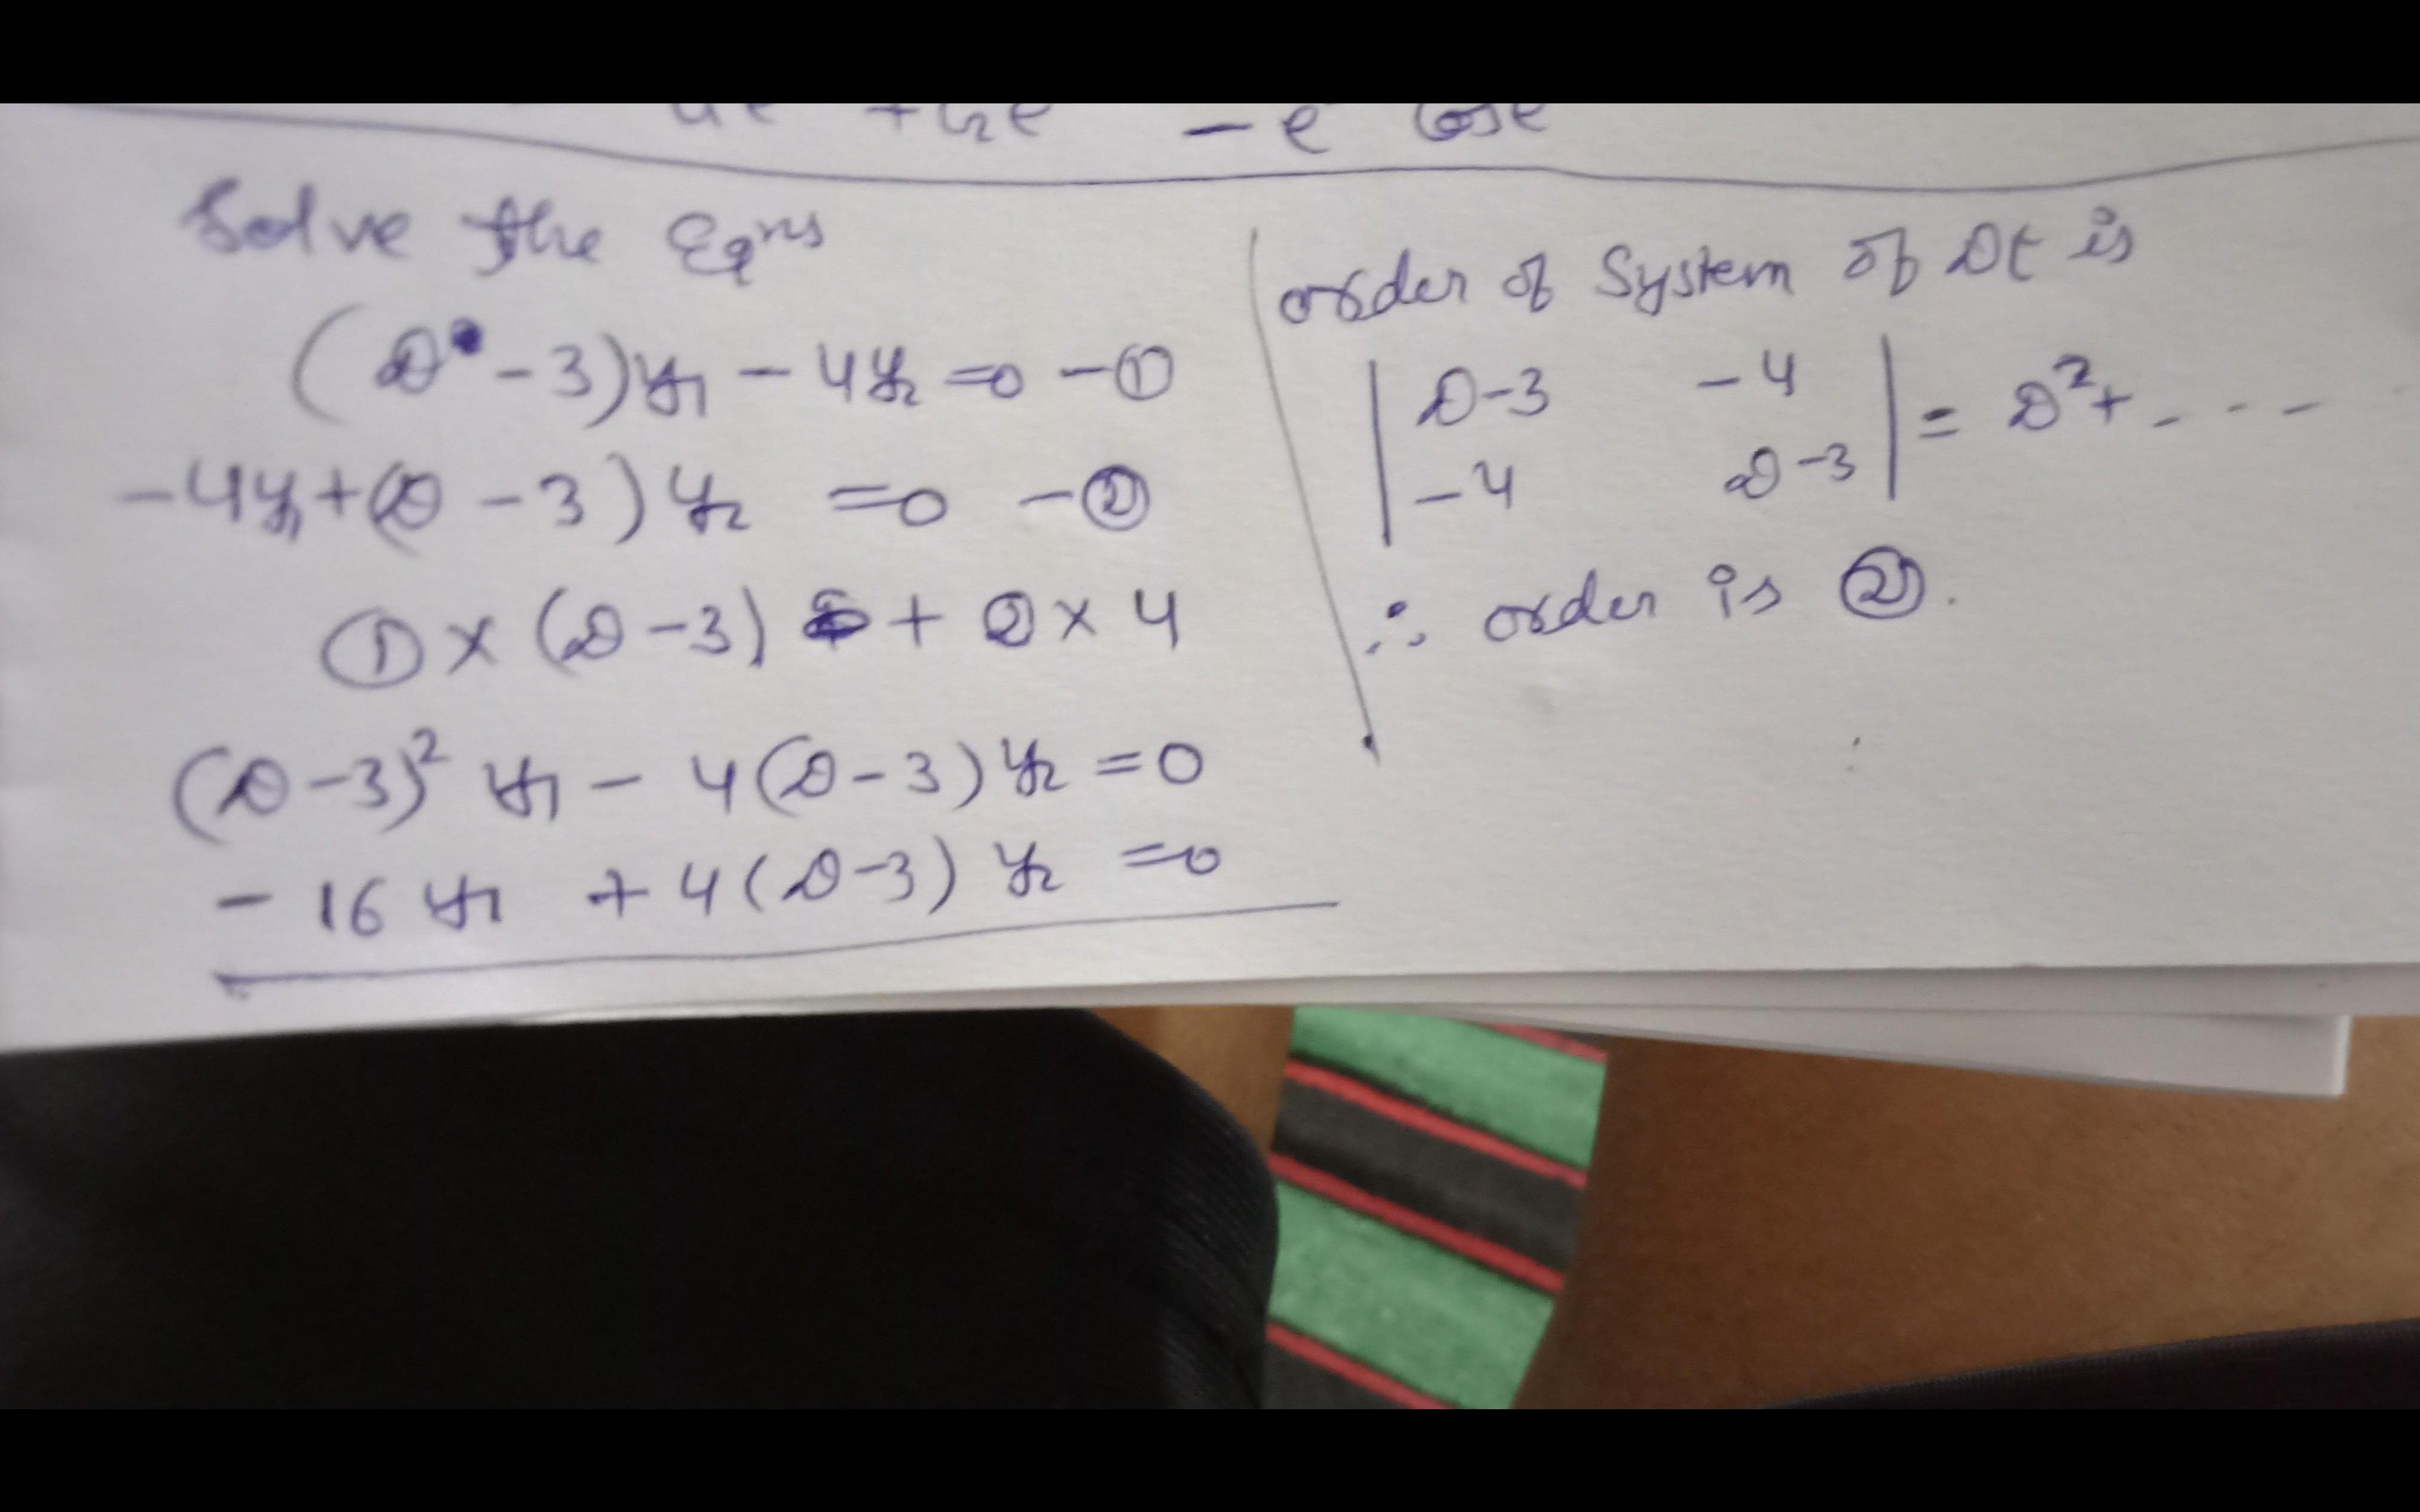 - e
Solve the Eqns
(D - 3)y1 - 4y2 = 0 - ①
-4y1 + (D - 3) y2 = 0 - ②
① × (D - 3) + ② × 4
(D - 3)² y1 - 4(D - 3) y2 = 0
- 16 y1 + 4(D - 3) y2 = 0
order of System of DE is
| D-3 -4 |
| -4 D-3 | = D² + - - -
∴ order is ②.